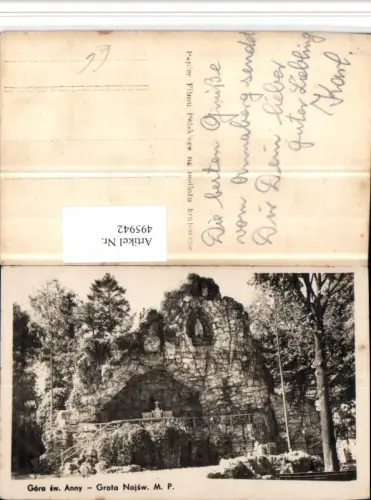 53
Papier Filmu Polskiego na podłożu krajowym
Die besten Grüße
vom Annaberg sendet
Dir Dein lieber
guter Liebling
Karl.
Artikel Nr.
495942
Góra św. Anny – Grota Najśw. M. P.